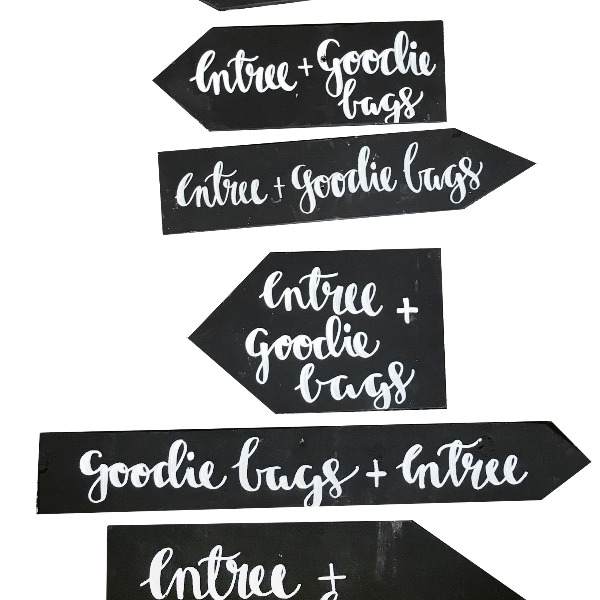 Entree + Goodie
bags
entree + goodie bags
entree +
goodie
bags
goodie bags + entree
entree +